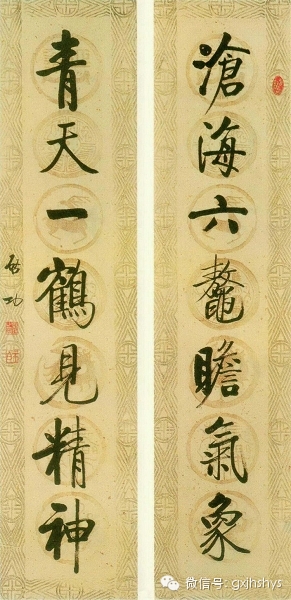 滄海六鼇瞻氣象
青天一鶴見精神
啟功
微信号: gxjhshys